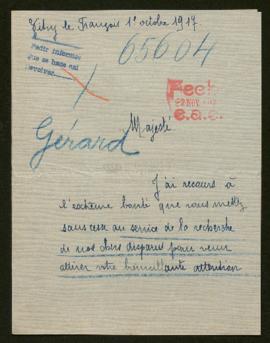 Vitry le François 1er octobre 1917
65604
Pedir informes
que se hace así
Fecha
22 NOV
e.a.e.
Gérard
Majesté
J'ai recours à
l'extrême bonté que vous mettez
sans cesse au service de la recherche
de nos chers disparus pour venir
attirer votre bienveillante attention